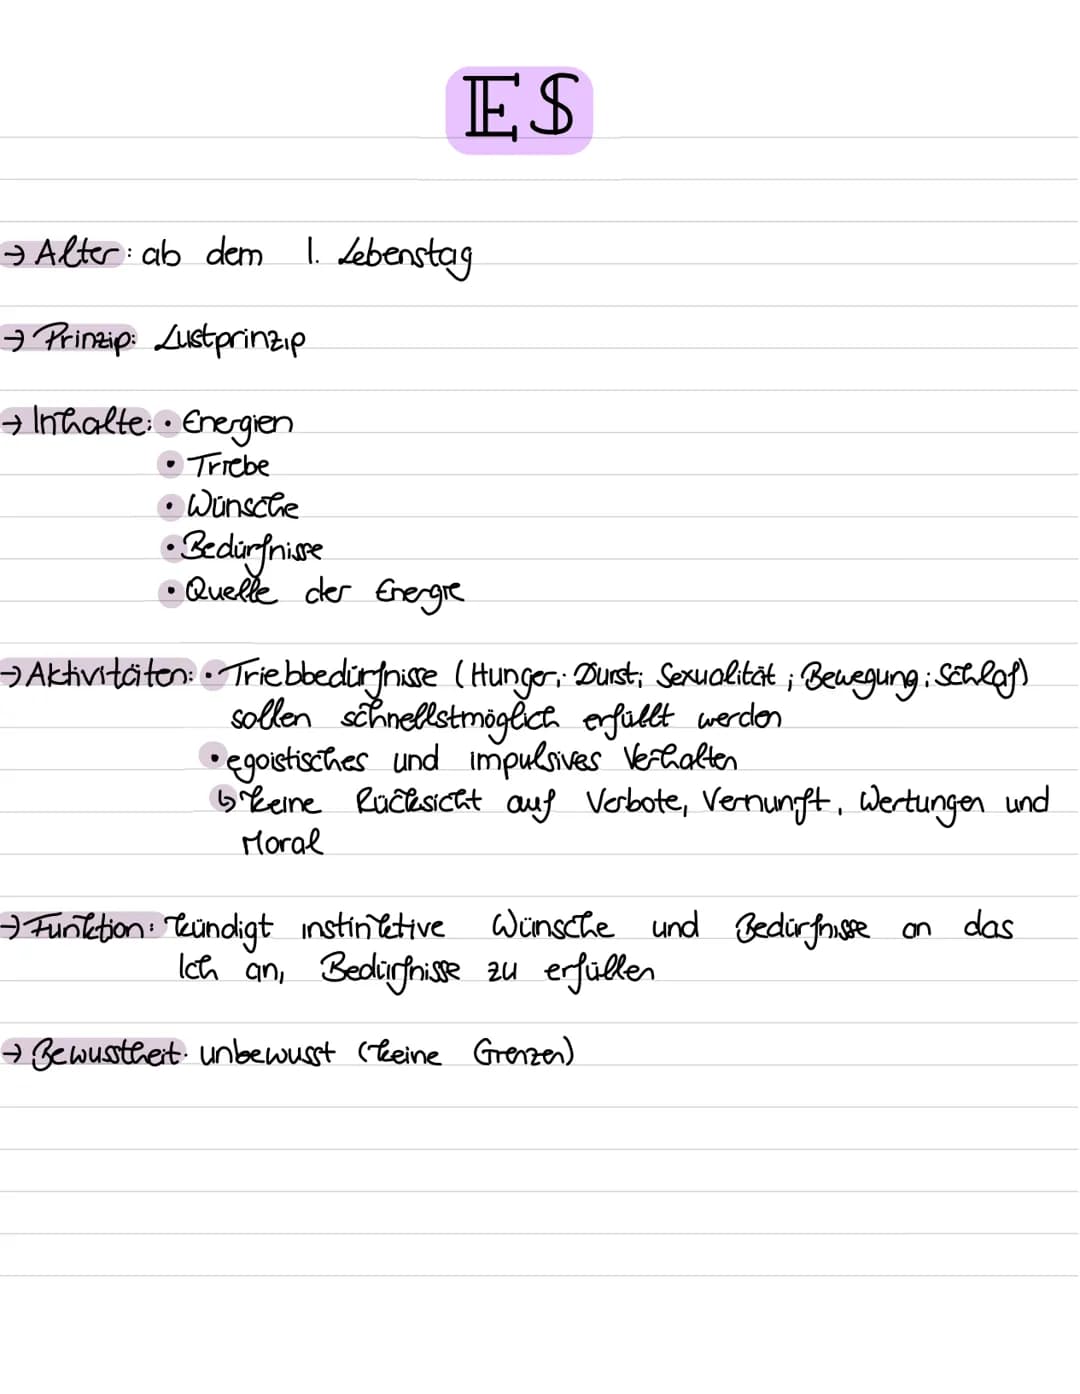 ES
→ Alter: ab dem 1. Lebenstag
→ Prinzip: Lustprinzip
→ Inhalte: • Energien
• Triebe
• Wünsche
• Bedürfnisse
• Quelle der Energie
→ Aktivitäten: • Triebbedürfnisse (Hunger; Durst; Sexualität; Bewegung; Schlaf)
sollen schnellstmöglich erfüllt werden
• egoistisches und impulsives Verhalten
↳ keine Rücksicht auf Verbote, Vernunft, Wertungen und
Moral
→ Funktion: kündigt instinktive Wünsche und Bedürfnisse an das
Ich an, Bedürfnisse zu erfüllen
→ Bewusstheit: unbewusst (keine Grenzen)